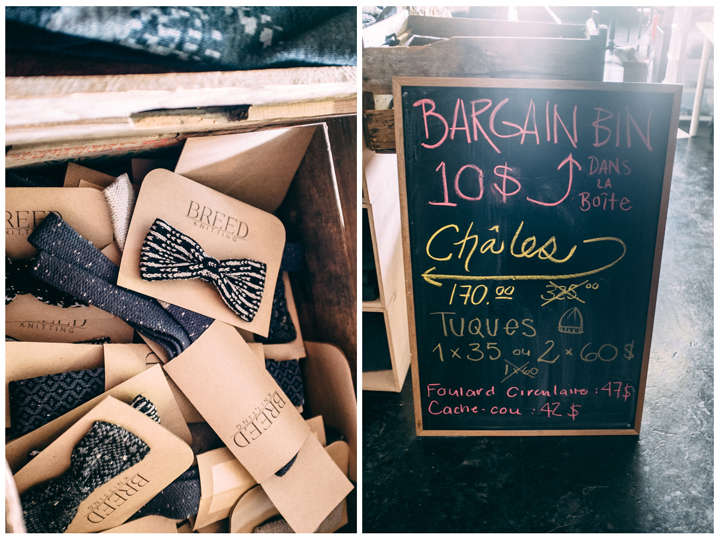 BREED
KNITTING
BREED
KNITTING
BREED
KNITTING
BREED
KNITTING
BARGAIN BIN
10$ DANS
LA
BOÎTE
Châles
170.00 325.00
TUQUES
1 x 35 ou 2 x 60$
1x60
Foulard Circulaire : 47$
Cache-cou : 42 $